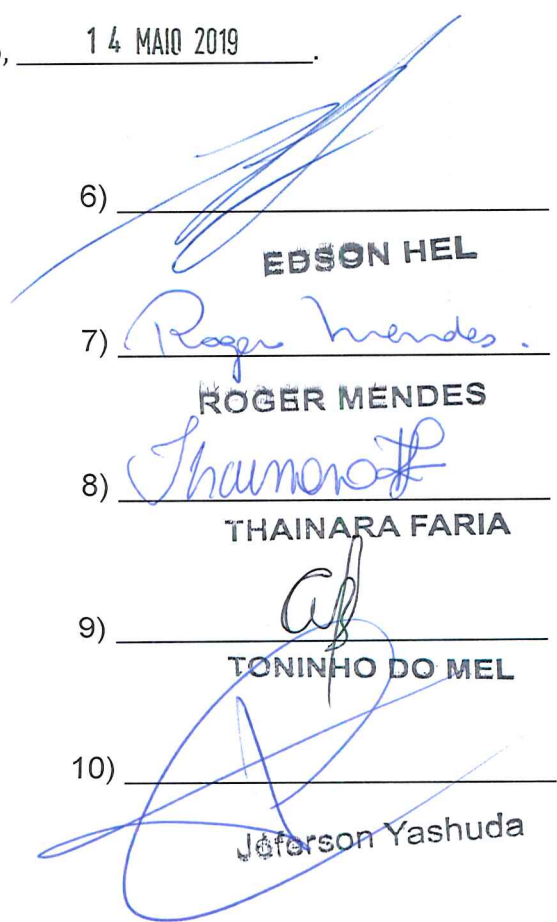 , 14 MAIO 2019.
6)
EDSON HEL
7) Roger Mendes.
ROGER MENDES
8) Thainara
THAINARA FARIA
9)
TONINHO DO MEL
10)
Jéferson Yashuda